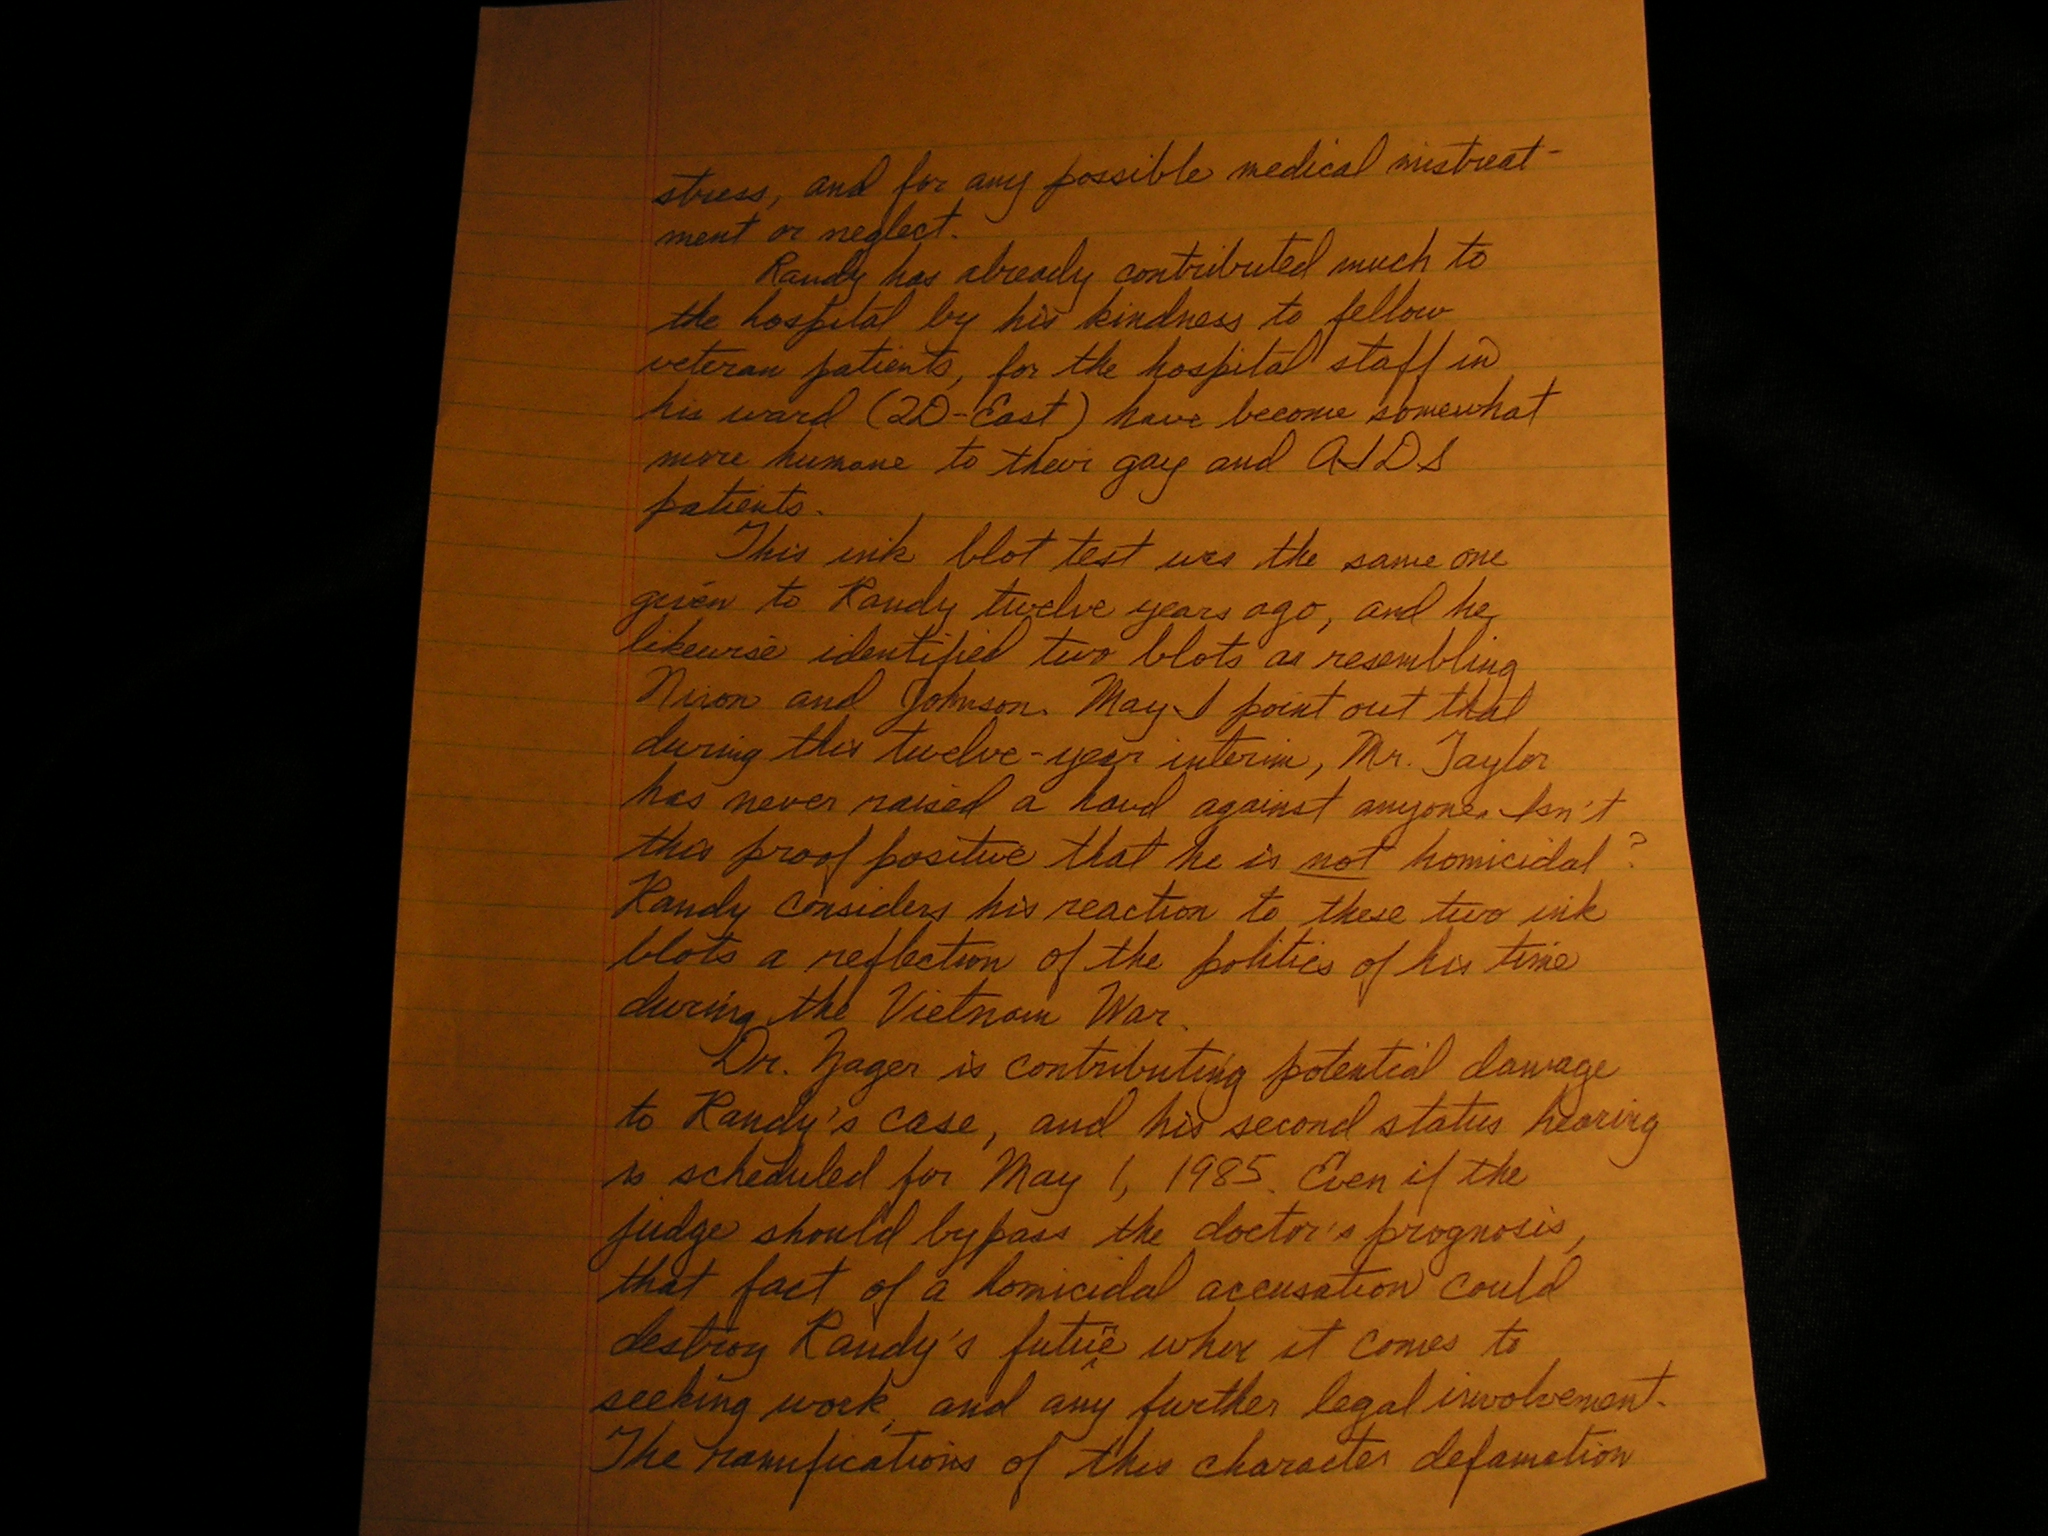 stress, and for any possible medical mistreat-
ment or neglect.
Randy has already contributed much to
the hospital by his kindness to fellow
veteran patients, for the hospital staff in
his ward (2D-East) have become somewhat
more humane to their gay and AIDS
patients.
This ink blot test was the same one
given to Randy twelve years ago, and he
likewise identified two blots as resembling
Nixon and Johnson. May I point out that
during this twelve-year interim, Mr. Taylor
has never raised a hand against anyone. Isn't
this proof positive that he is not homicidal?
Randy considers his reaction to these two ink
blots a reflection of the politics of his time
during the Vietnam War.
Dr. Yager is contributing potential damage
to Randy's case, and his second status hearing
is scheduled for May 1, 1985. Even if the
judge should bypass the doctor's prognosis,
that fact of a homicidal accusation could
destroy Randy's future when it comes to
seeking work, and any further legal involvement.
The ramifications of this character defamation